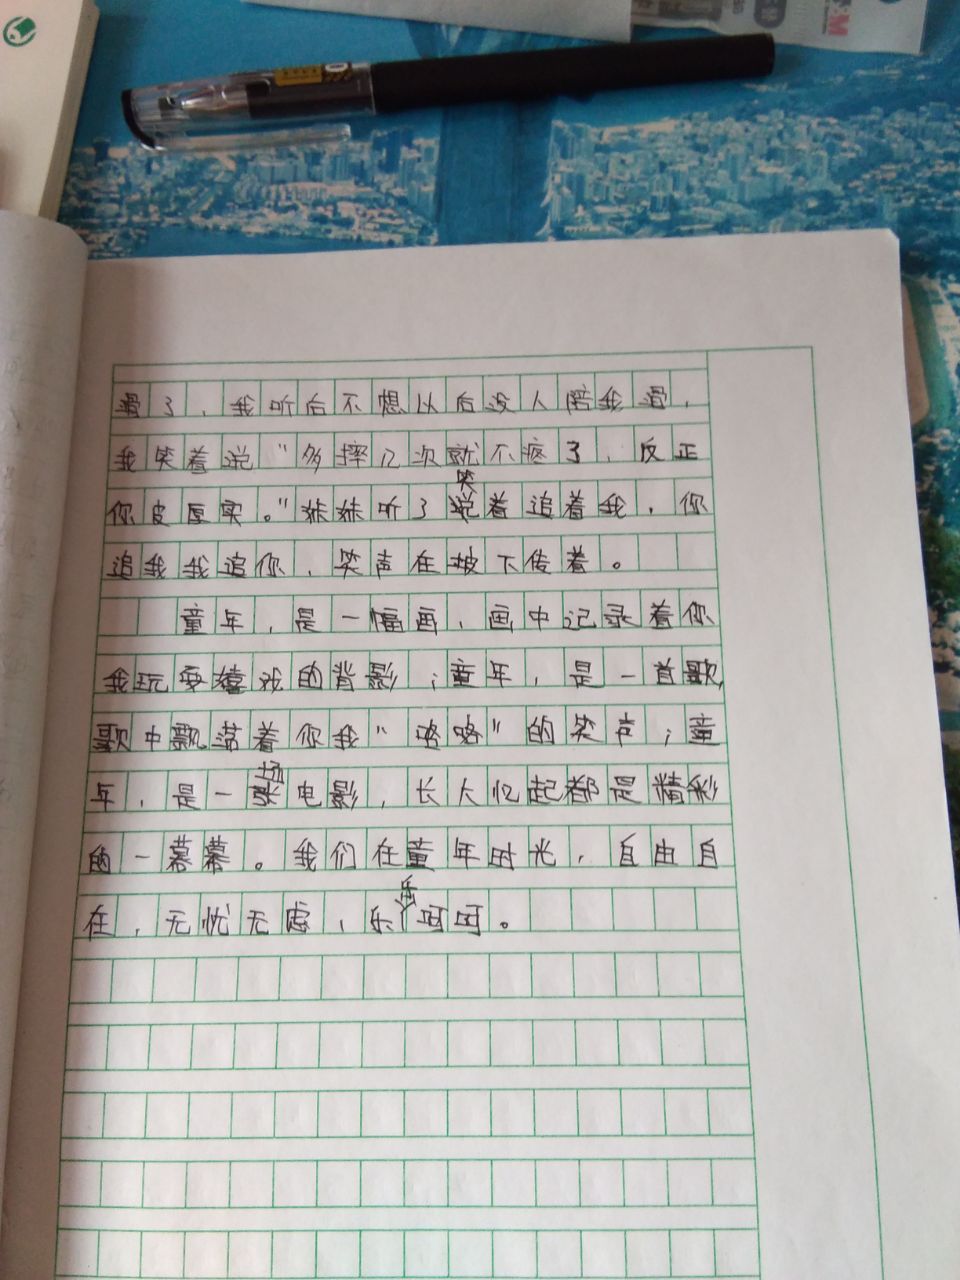 滑了，我听后不想以后没人陪我滑，
我笑着说"多摔几次就不疼了，反正
你皮厚实。"妹妹听了笑着追着我，你
追我我追你，笑声在坡下传着。
童年，是一幅画，画中记录着你
我玩耍嬉戏的背影；童年，是一首歌，
歌中飘荡着你我"咯咯"的笑声；童
年，是一场电影，长大忆起都是精彩
的一幕幕。我们在童年时光，自由自
在，无忧无虑，乐乐呵呵。